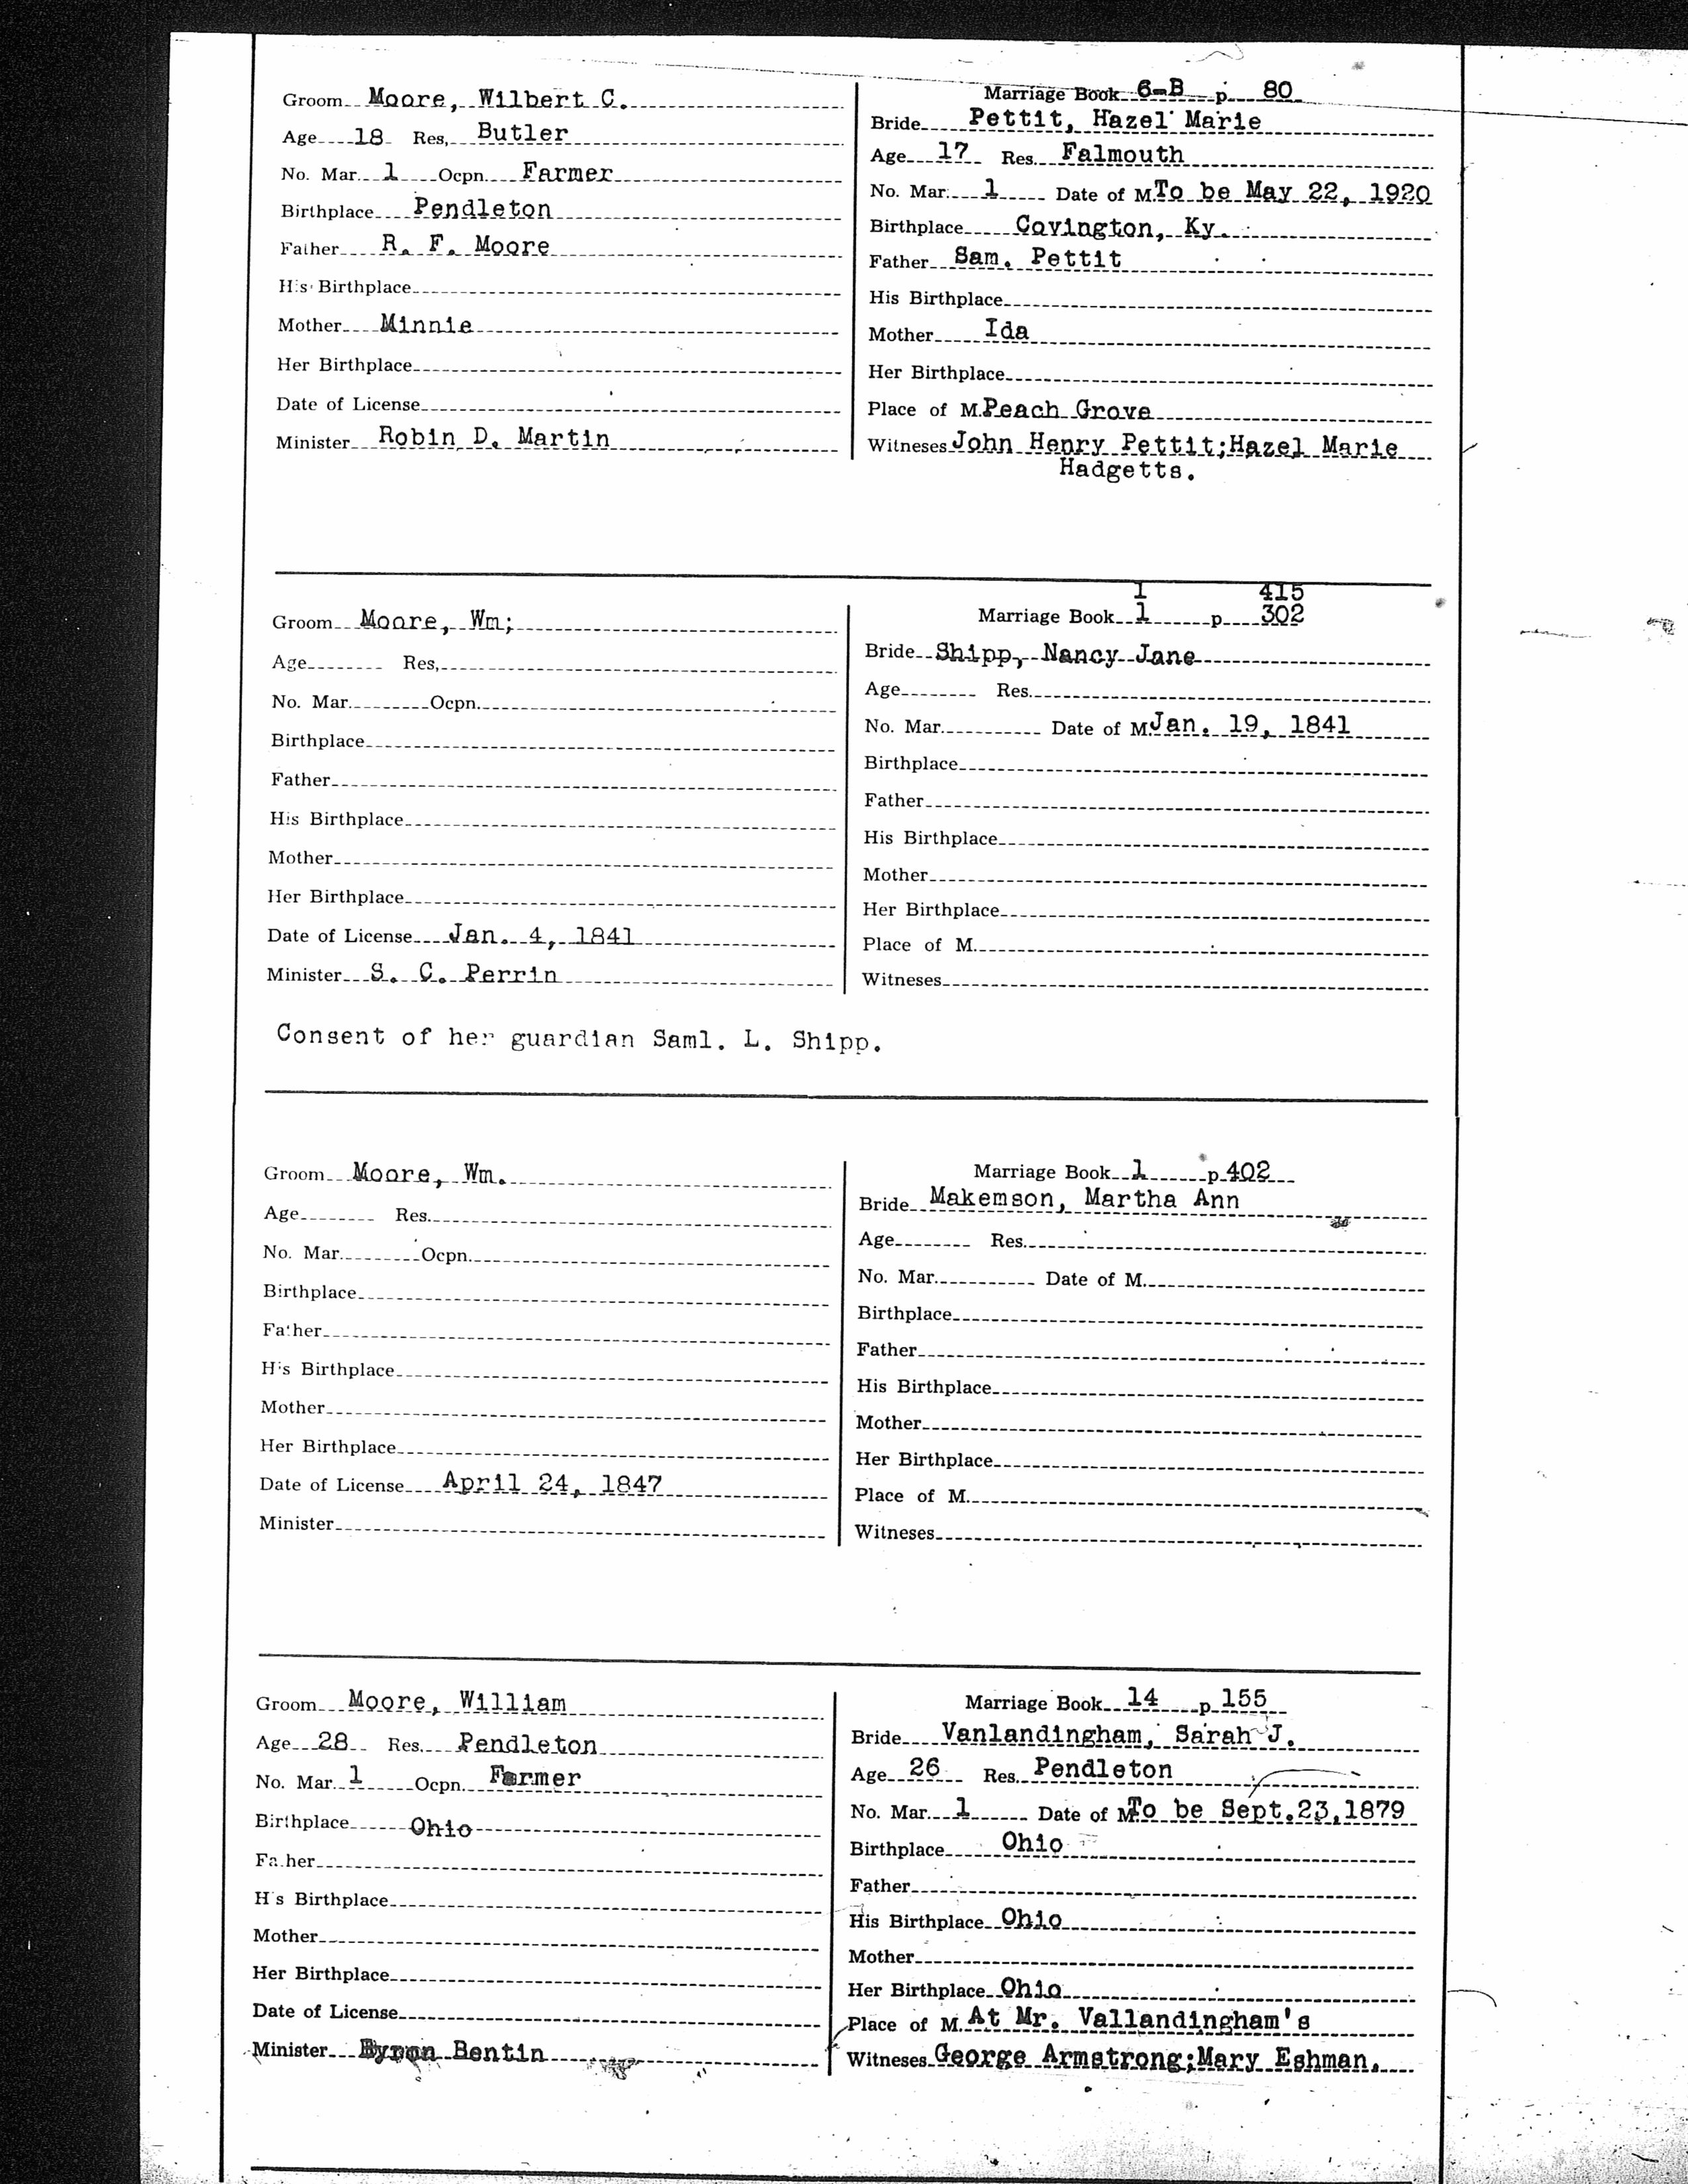 Groom Moore, Wilbert C.
Age 18 Res. Butler
No. Mar. 1 Ocpn. Farmer
Birthplace Pendleton
Father R. F. Moore
His Birthplace
Mother Minnie
Her Birthplace
Date of License
Minister Robin D. Martin
Marriage Book 6-B p 80
Bride Pettit, Hazel Marie
Age 17 Res. Falmouth
No. Mar. 1 Date of M. To be May 22, 1920
Birthplace Covington, Ky.
Father Sam. Pettit
His Birthplace
Mother Ida
Her Birthplace
Place of M. Peach Grove
Witneses John Henry Pettit;Hazel Marie
Hadgetts.
Groom Moore, Wm;
Age Res.
No. Mar. Ocpn.
Birthplace
Father
His Birthplace
Mother
Her Birthplace
Date of License Jan. 4, 1841
Minister S. C. Perrin
1 415
Marriage Book 1 p 302
Bride Shipp, Nancy Jane
Age Res.
No. Mar. Date of M. Jan. 19, 1841
Birthplace
Father
His Birthplace
Mother
Her Birthplace
Place of M.
Witneses
Consent of her guardian Saml. L. Shipp.
Groom Moore, Wm.
Age Res.
No. Mar. Ocpn.
Birthplace
Father
His Birthplace
Mother
Her Birthplace
Date of License April 24, 1847
Minister
Marriage Book 1 p 402
Bride Makemson, Martha Ann
Age Res.
No. Mar. Date of M.
Birthplace
Father
His Birthplace
Mother
Her Birthplace
Place of M.
Witneses
Groom Moore, William
Age 28 Res. Pendleton
No. Mar. 1 Ocpn. Farmer
Birthplace Ohio
Father
His Birthplace
Mother
Her Birthplace
Date of License
Minister Byron Bentin
Marriage Book 14 p 155
Bride Vanlandingham, Sarah J.
Age 26 Res. Pendleton
No. Mar. 1 Date of M. To be Sept.23,1879
Birthplace Ohio
Father
His Birthplace Ohio
Mother
Her Birthplace Ohio
Place of M. At Mr. Vallandingham's
Witneses George Armstrong;Mary Eshman.